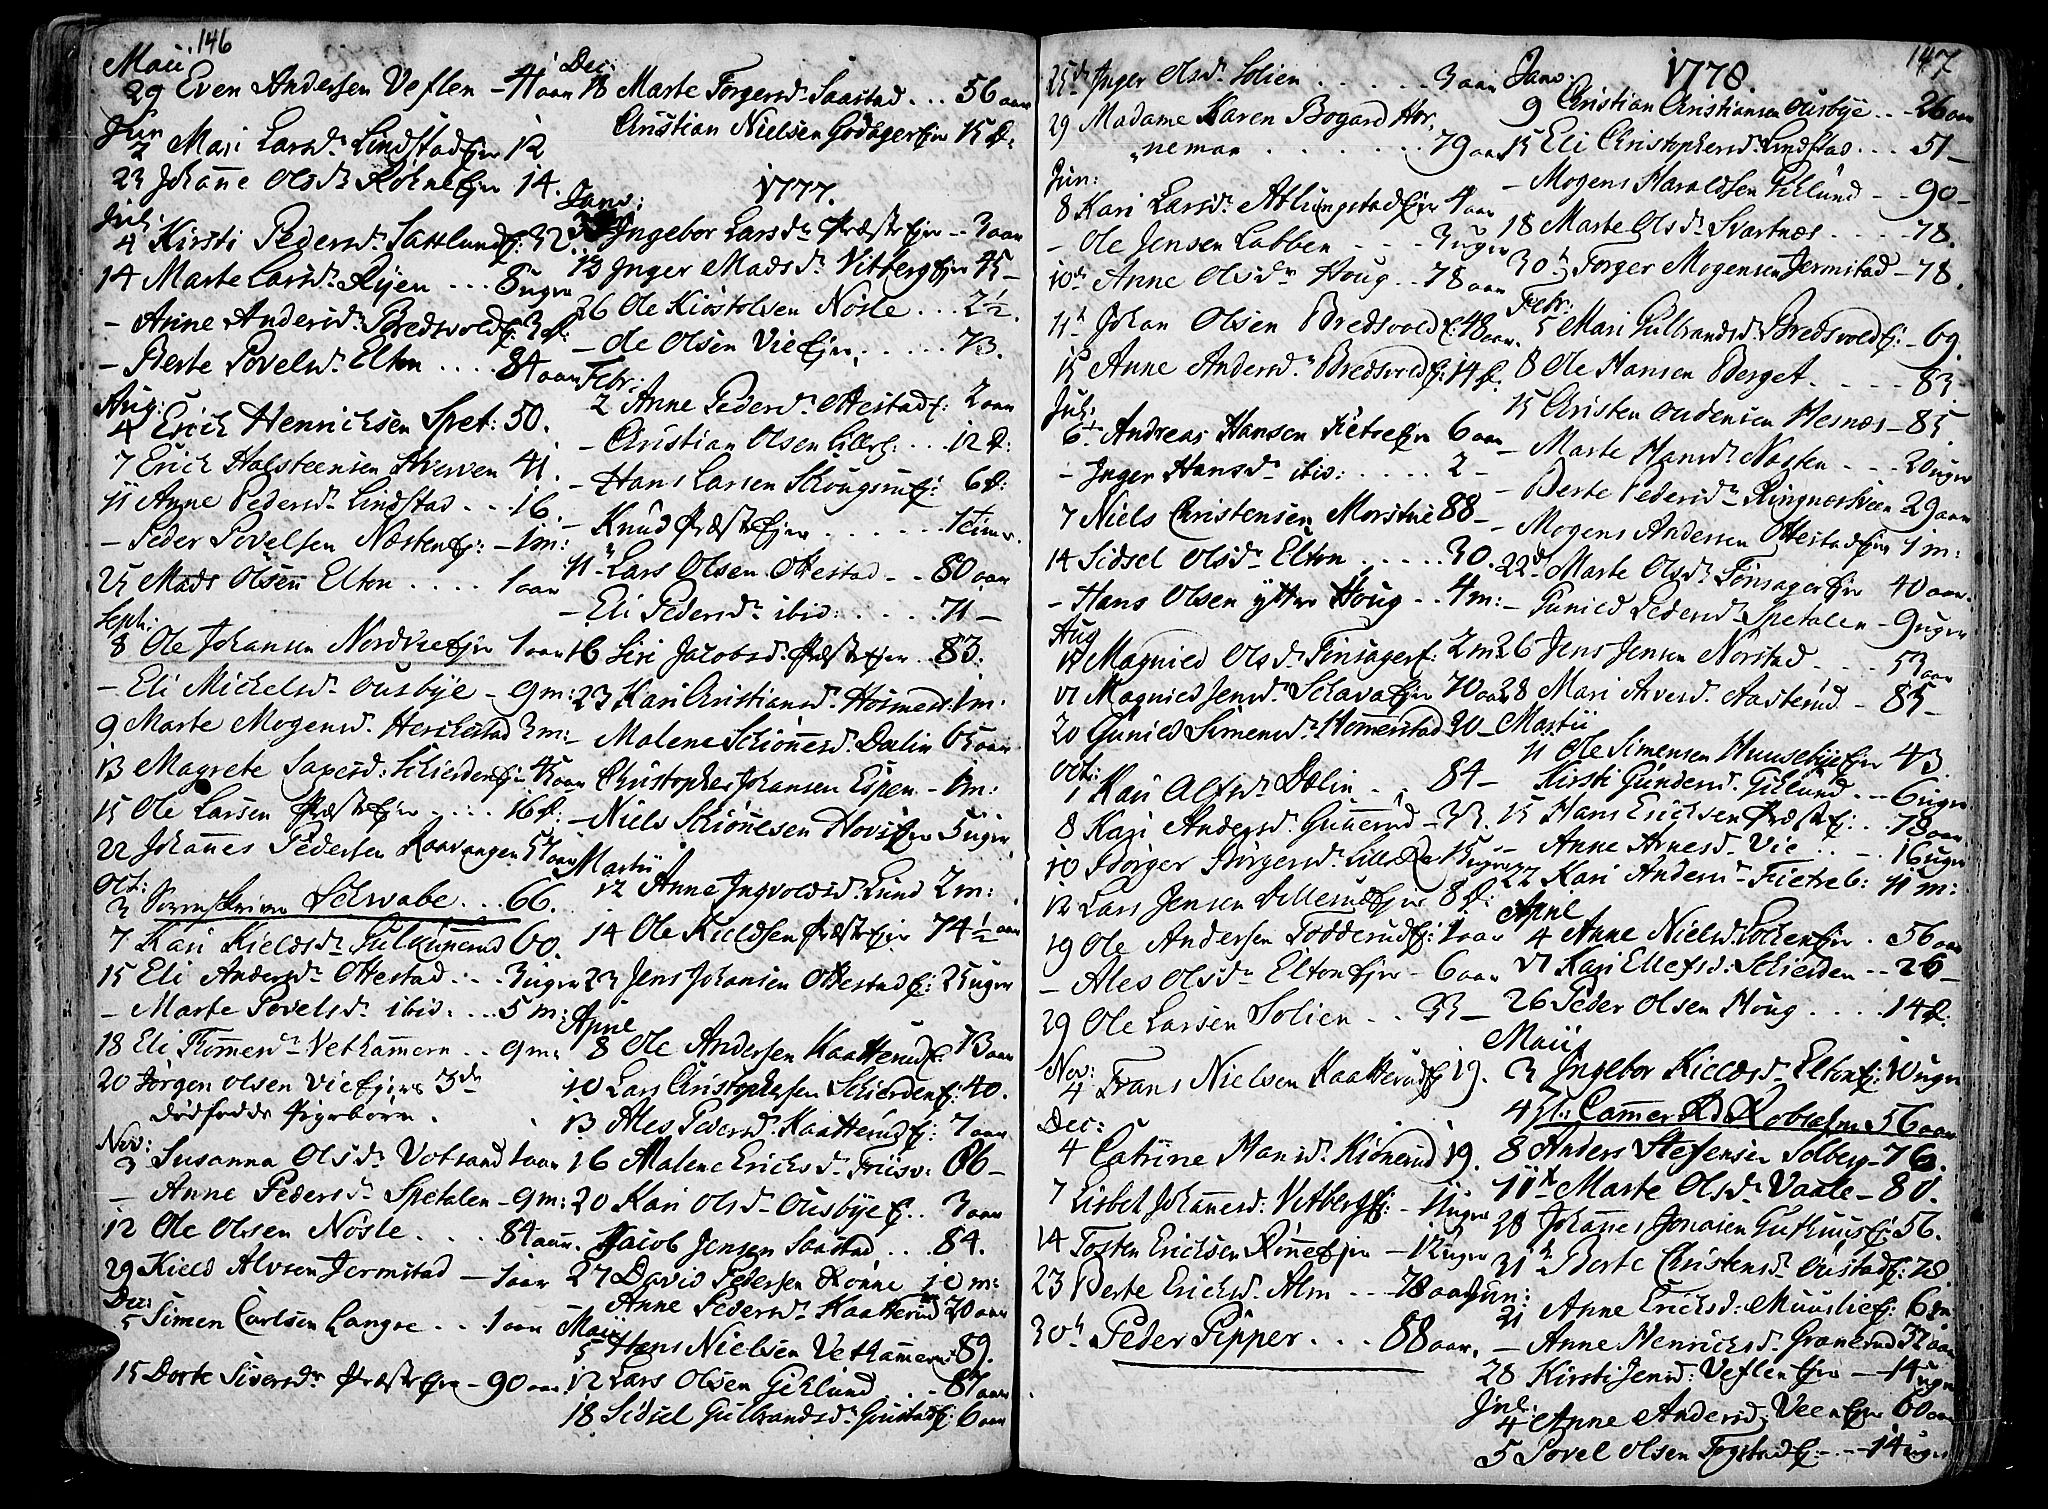 146
Maii.
29 Even Andersen Veflen - 41 aar
Jun
2 Mari Larsd. Lindstad Ejer 12
23 Johanne Olsd. Røhne Ejer 14.
Jul:
4 Kirsti Pedersd. Sattlund E: 32.
14 Marte Larsd. Ryen ... 8 uger
- Anne Andersd. Bredsvold E: 3 d:
- Berte Povelsd. Elton .... 84 aar
Aug:
4 Erich Henrichsen Spet: 50.
7 Erich Halsteensen 41.
11 Anne Pedersd. Lindstad .. 16.
- Peder Povelsen Næsten Ej: - 1 m:
25 Mads Olsen Elton .... 1 aar
Sept:
8 Ole Johansen Nordvie Ejer 1 aar
- Eli Michelsd. Ousbÿe - 9 m:
9 Marte Mogensd. Herchestad 3 m:
13 Magrete Saxesd: Schierden Ejr 45 aar
15 Ole Larsen Præst Ejer .... 16 d:
22 Johannes Pedersen Raavangen 57 aar
Oct:
3 Sorenskriver Schwabe ... 66.
7 Kari Kieldsd. 60.
15 Eli Andersd. Ottestad ... 3 uger
- Marte Povelsd. ibid. ... 5 m:
18 Eli Tommesd. Vetkammern .. 9 m:
20 Jørgen Olsen Vie Ejers 3de
dødfødde Pigebørn.
Nov:
3 Susanna Olsd. Votsand 1 aar
- Anne Pedersd. Spetalen - 9 m:
12 Ole Olsen Nosle .... 84 aar.
29 Kield Alvsen Jermstad - 1 aar
Dec:
5 Simen Carlsen Langøe ... 1 aar
15 Dorte Siversdr Præst Ejer - 90 aar
Dec:
18 Marte Torgersd. Saastad ... 56 aar
Christian Nielsen Godager Ejer 15 d:
1777.
Janv:
Ingebor Larsdr Præst Ejer .. 3 aar
13 Inger Madsd. Vitberg Ejer 45 -
26 Ole Kiøstolsen Nosle ... 2½.
- Ole Olsen Vie Ejer ..... 73.
Febr:
2 Anne Pedersd. Ottestad E: 2 aar
- Christian Olsen ... 12 d:
- Hans Larsen Skougsrud Ej: 6 d:
- Knud Præst Ejer ...... 1 time.
11 Lars Olsen Ottestad .. 80 aar
- Eli Pedersd. ibid: ..... 71 -
16 Siri Jacobsd. Præst Ejer .. 83.
23 Kari Christiansd. Hosmest: 1 m.
- Malene Schiønnesd. Dælin 65 aar
- Christopher Johansen Espen - 1 m:
- Niels Schiønnesen Hovs Ejer 5 uger
Martii
12 Anne Ingvoldsd. Lund 2 m:
14 Ole Kieldsen Præst Ejer 74½ aar
23 Jens Johansen Ottestad E: 25 uger
April
8 Ole Andersen Kaatterud E: 73 aar
10 Lars Christophersen Schierden E: 40.
13 Ales Pedersd. Kaatterud E: 7 aar
16 Malene Erichsd. Friisv: 66 -
20 Kari Olsd. Ousbÿe E. . 3 aar
Jacob Jensen Saastad ... 84.
27 David Pedersen Rønne 10 m:
Anne Pedersd. Kaatterud 20 aar
Maii
5 Hans Nielsen Vetkammern 89.
12 Lars Olsen Gicklund ... 87 aar
18 Sidsel Gulbrandsd. Grustad E: 6 aar
25d Inger Olsd. Solien ..... 3 aar
29 Madame Karen Bogard Hor-
neman ....... 79 aar
Jun:
8 Kari Larsd. Atlungstad Ejer 4 aar
- Ole Jensen Labben ... 3 uger
10d Anne Olsdr Houg .. 78 aar
11t Johan Olsen Bredsvold E: 48 aar.
15 Anne Andersd. Bredsvold E: 14 d.
Jul:
6t Andreas Hansen Fietre Ejer 6 aar
- Inger Hansd. ibid: .... 2 -
7 Niels Christensen Morstue 88 -
14 Sidsel Olsd. Elton ..... 30.
- Hans Olsen ytter Houg .. 4 m:
Aug
14 Magnied Olsd. Finsager E. 2 m
17 Magnied Jensd. Schava Ejer 70 aar
20 Gunild Simensd. Hommerstad 20 -
Oct:
1 Kari Alfsd. Dælin . . 84 -
8 Kari Andersd. Gunnerud - 33.
10 Børger Børgersd. Lille 15 uger
12 Lars Jensen Dillerud Ejer 8 d:
19 Ole Andersen Todderud E: 1 aar
- Ales Olsdr Elton Ejer - 6 aar
29 Ole Larsen Solien .. 33 -
Nov:
4 Frans Nielsen Kaatterud E 19.
Dec:
4 Catrine Hansd. Kiønerud 19.
7 Lisbet Johannesd: Vitberg E: - 11 uger
14 Tosten Erichsen Rønne Ejer - 12 uger
23 Berte Erichsd. Alm ... 78 aar
30h Peder Pipper ... 88 aar.
147
1778.
Janv:
9 Christian Christiansen Ousbÿe ... 26 aar
15 Eli Christophersd. Lindstad ... 51 -
- Mogens Haraldsen Gicklund .. 90 -
18 Marte Olsd. Svartnæs .... 78.
30h Torger Mogensen Jermstad - 78.
Febr:
5 Mari Gulbrandsd. Bredsvold E: - 69.
8 Ole Hansen Berget .... 83.
15 Christen Oudensen Hesnæs - 85.
- Marte Hansd. Næsten ... 20 uger
- Berte Pedersd. Ringnæsveen 29 aar
- Mogens Andersen Ottestad Ejer 1 m:
22d Marte Olsd. Tønsager Ejer 40 aar.
- Gunild Pedersd. Spetalen - 9 uger
26 Jens Jensen Norstad ... 53 aar
28 Mari Arvesd. Aasterud - 85 -
Martii
11 Ole Simensen Huusebÿe Ejer 43.
Kirsti Gundersd. Gicklund ... 6 uger
15 Hans Erichsen Præst E: .. 78 aar
- Anne Arnesd. Vie ... 16 uger
22 Kari Andersd. Fietre E: 11 m:
April
4 Anne Nielsd. Løken Ejer . 56 aar
17 Kari Ellefsd: Schierden ... 26 -
26 Peder Olsen Houg .... 14 d.
Maii
3 Ingebor Kieldsd. Elton E: 10 uger
4 Cammer Rd Robsahm 56 aar
8 Anders Stefensen Solberg - 76.
11t Marte Olsd. Vaale - 80.
28 Johannes Jonasen Guthuus E: 56.
31h Berte Christensd. Oustad E: 78.
Jun:
21 Anne Erichsd: Muuslie E: 6 m
- Anne Henrichsd. Granerud 32 aar
28 Kirsti Jensd: Veflen Ejer - 14 uger
Jul:
4 Anne Andersd: Veen Ejer 60 aar
5 Povel Olsen Fogstad E: ... 14 uger